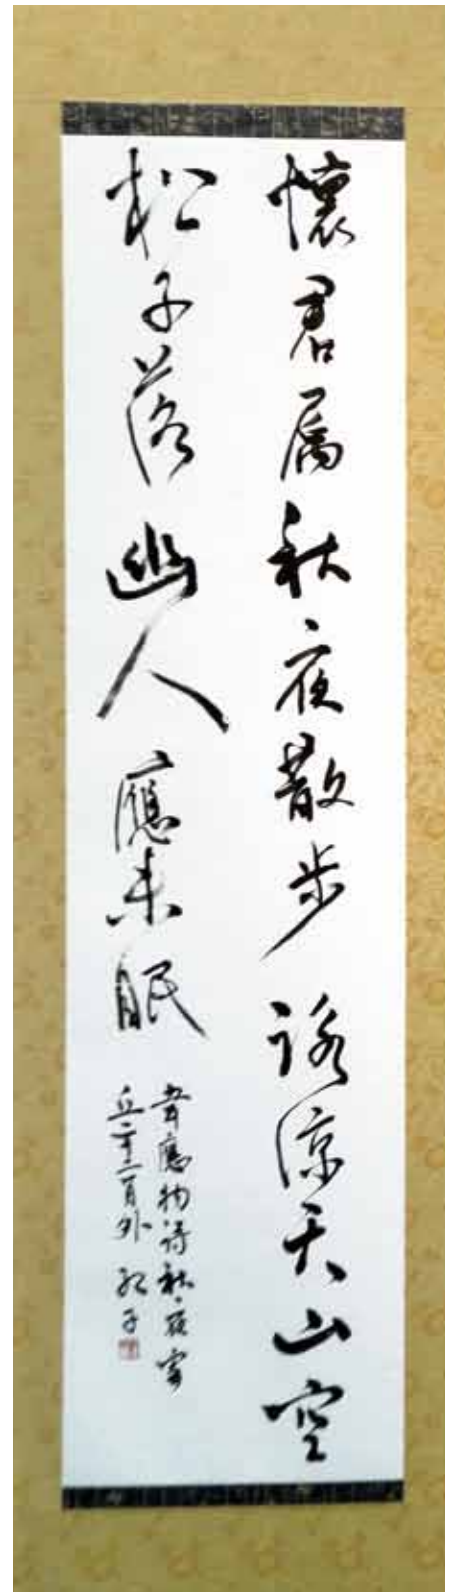 懷君属秋夜散步詠涼天山空
松子落幽人應未眠
韋應物詩秋夜寄
丘二十二員外